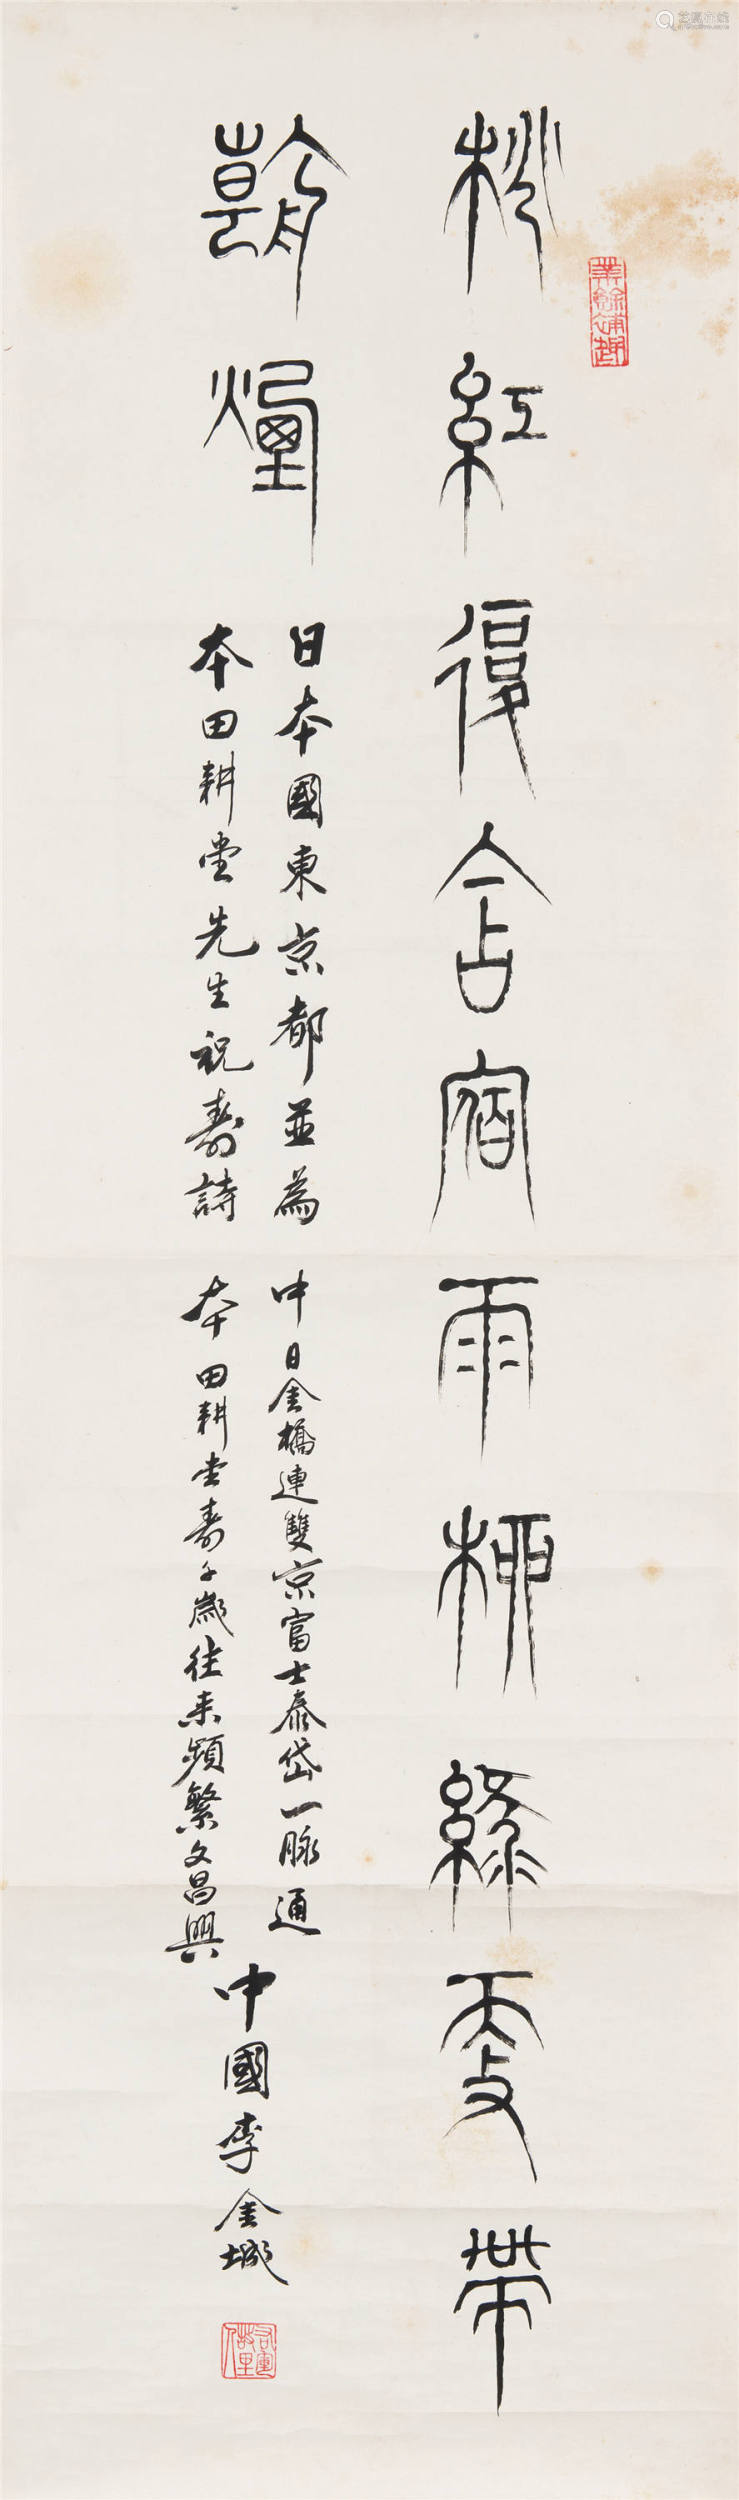 桃紅復含宿雨柳綠更帶
朝煙
日本國東京都並為
本田耕堂先生祝壽詩
中日金橋連雙京富士泰岱一脉通
本田耕堂壽千歲往来頻繁文昌興
中國李金城
業餘補趣